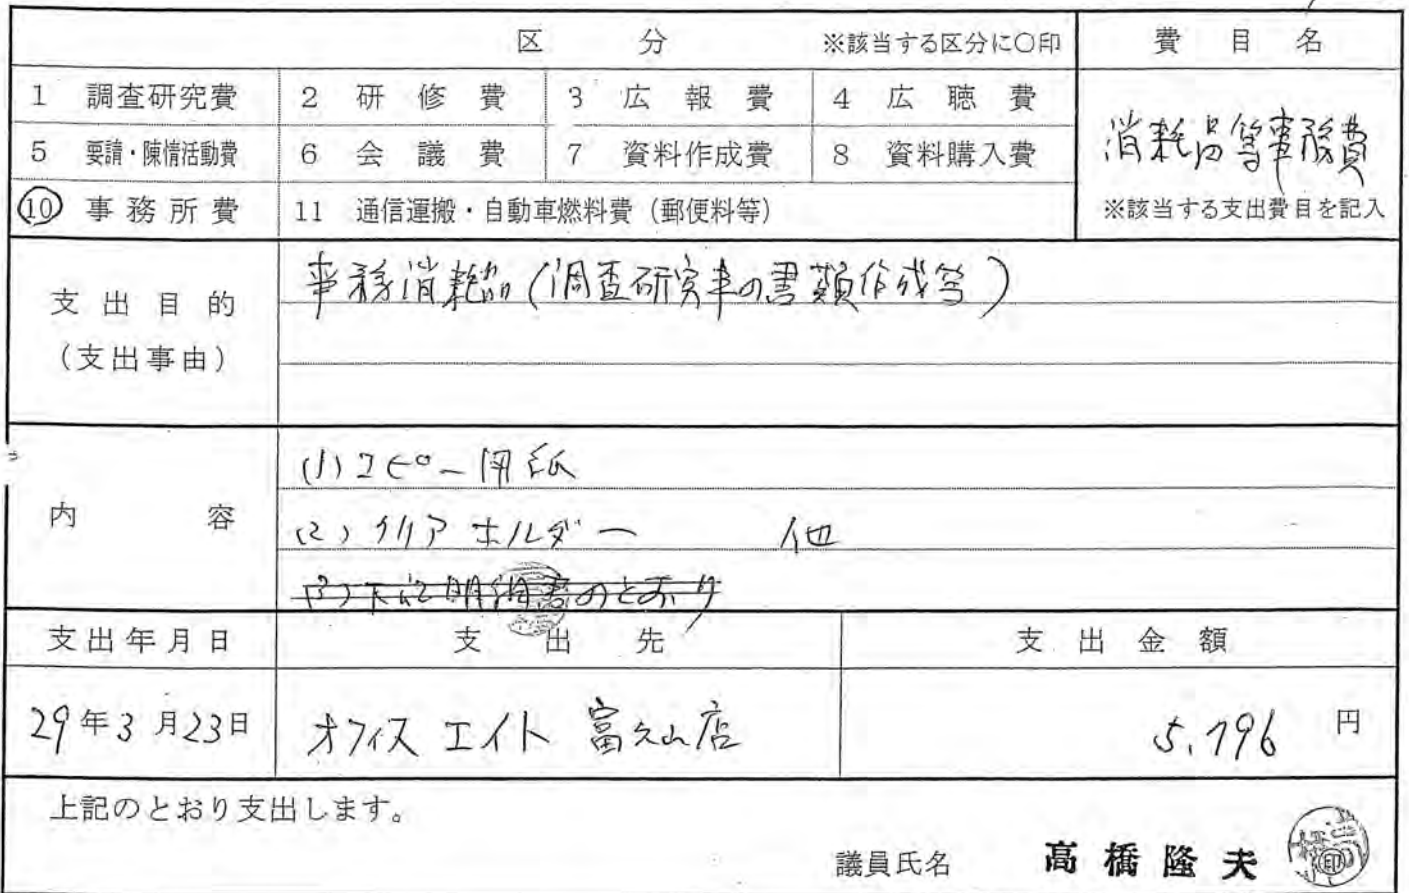 区分 ※該当する区分に○印 費目名
1 調査研究費 2 研修費 3 広報費 4 広聴費
消耗品等事務費
5 要請・陳情活動費 6 会議費 7 資料作成費 8 資料購入費
10 事務所費 11 通信運搬・自動車燃料費（郵便料等） ※該当する支出費目を記入
支出目的
（支出事由）
事務消耗品（調査研究車の書類作成等）
内容
(1) コピー用紙
(2) クリアホルダー 他
(3) 下記明細書のとおり
支出年月日 支出先 支出金額
29年3月23日 オフィスエイト 富久山店 5,796円
上記のとおり支出します。
議員氏名 高橋隆夫
印